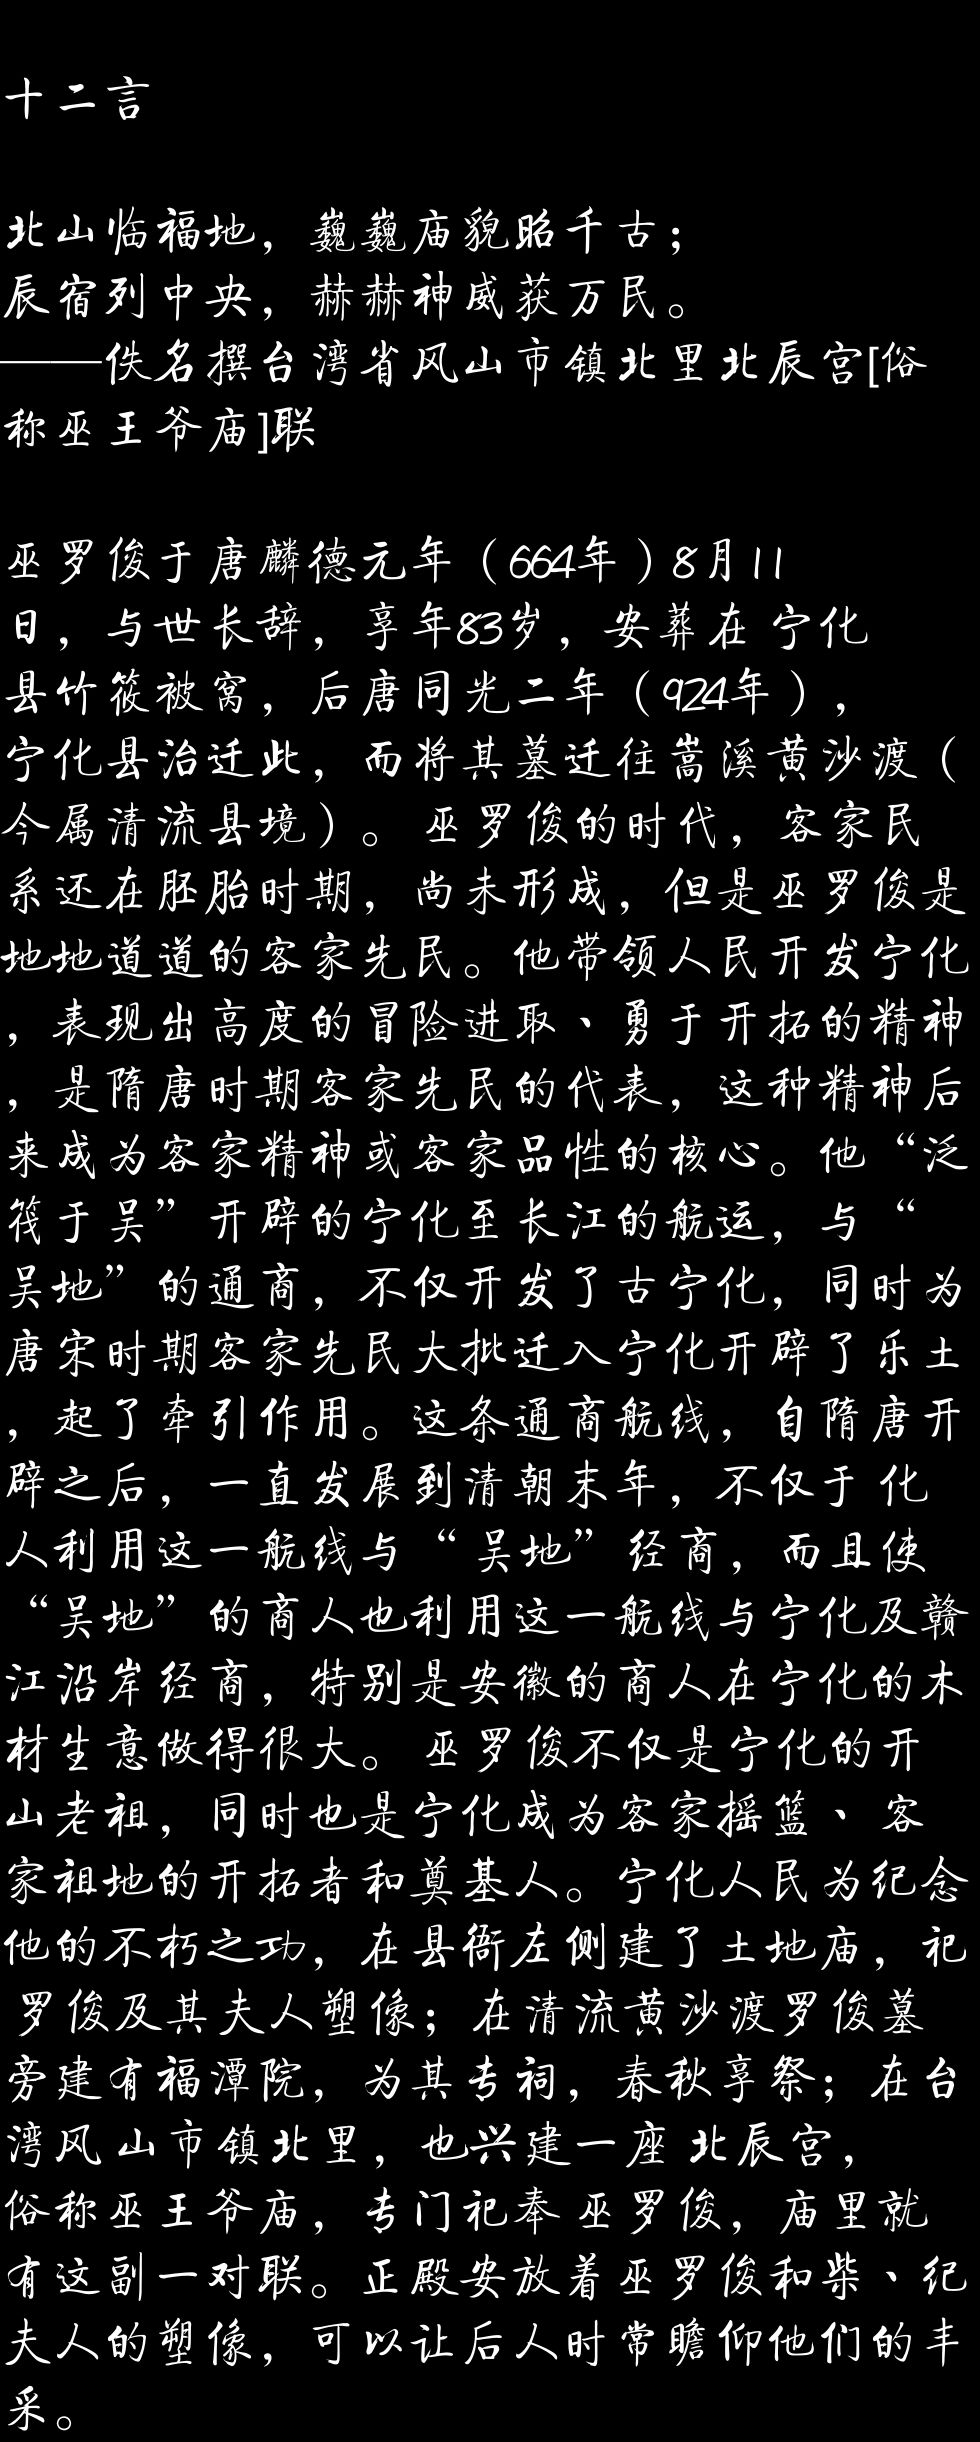 十二言
北山临福地，巍巍庙貌昭千古；
辰宿列中央，赫赫神威获万民。
——佚名撰台湾省风山市镇北里北辰宫[俗
称巫王爷庙]联
巫罗俊于唐麟德元年（664年）8月11
日，与世长辞，享年83岁，安葬在 宁化
县竹筱被窝，后唐同光二年（924年），
宁化县治迁此，而将其墓迁往嵩溪黄沙渡（
今属清流县境）。 巫罗俊的时代，客家民
系还在胚胎时期，尚未形成，但是巫罗俊是
地地道道的客家先民。他带领人民开发宁化
，表现出高度的冒险进取、勇于开拓的精神
，是隋唐时期客家先民的代表，这种精神后
来成为客家精神或客家品性的核心。他“泛
筏于吴”开辟的宁化至长江的航运，与“
吴地”的通商，不仅开发了古宁化，同时为
唐宋时期客家先民大批迁入宁化开辟了乐土
，起了牵引作用。这条通商航线，自隋唐开
辟之后，一直发展到清朝末年，不仅于 化
人利用这一航线与“吴地”经商，而且使
“吴地”的商人也利用这一航线与宁化及赣
江沿岸经商，特别是安徽的商人在宁化的木
材生意做得很大。 巫罗俊不仅是宁化的开
山老祖，同时也是宁化成为客家摇篮、 客
家祖地的开拓者和奠基人。宁化人民为纪念
他的不朽之功，在县衙左侧建了土地庙，祀
罗俊及其夫人塑像；在清流黄沙渡罗俊墓
旁建有福潭院，为其专祠，春秋享祭；在台
湾风山市镇北里，也兴建一座 北辰宫，
俗称巫王爷庙，专门祀奉 巫罗俊，庙里就
有这副一对联。正殿安放着巫罗俊和柴、纪
夫人的塑像，可以让后人时常瞻仰他们的丰
采。